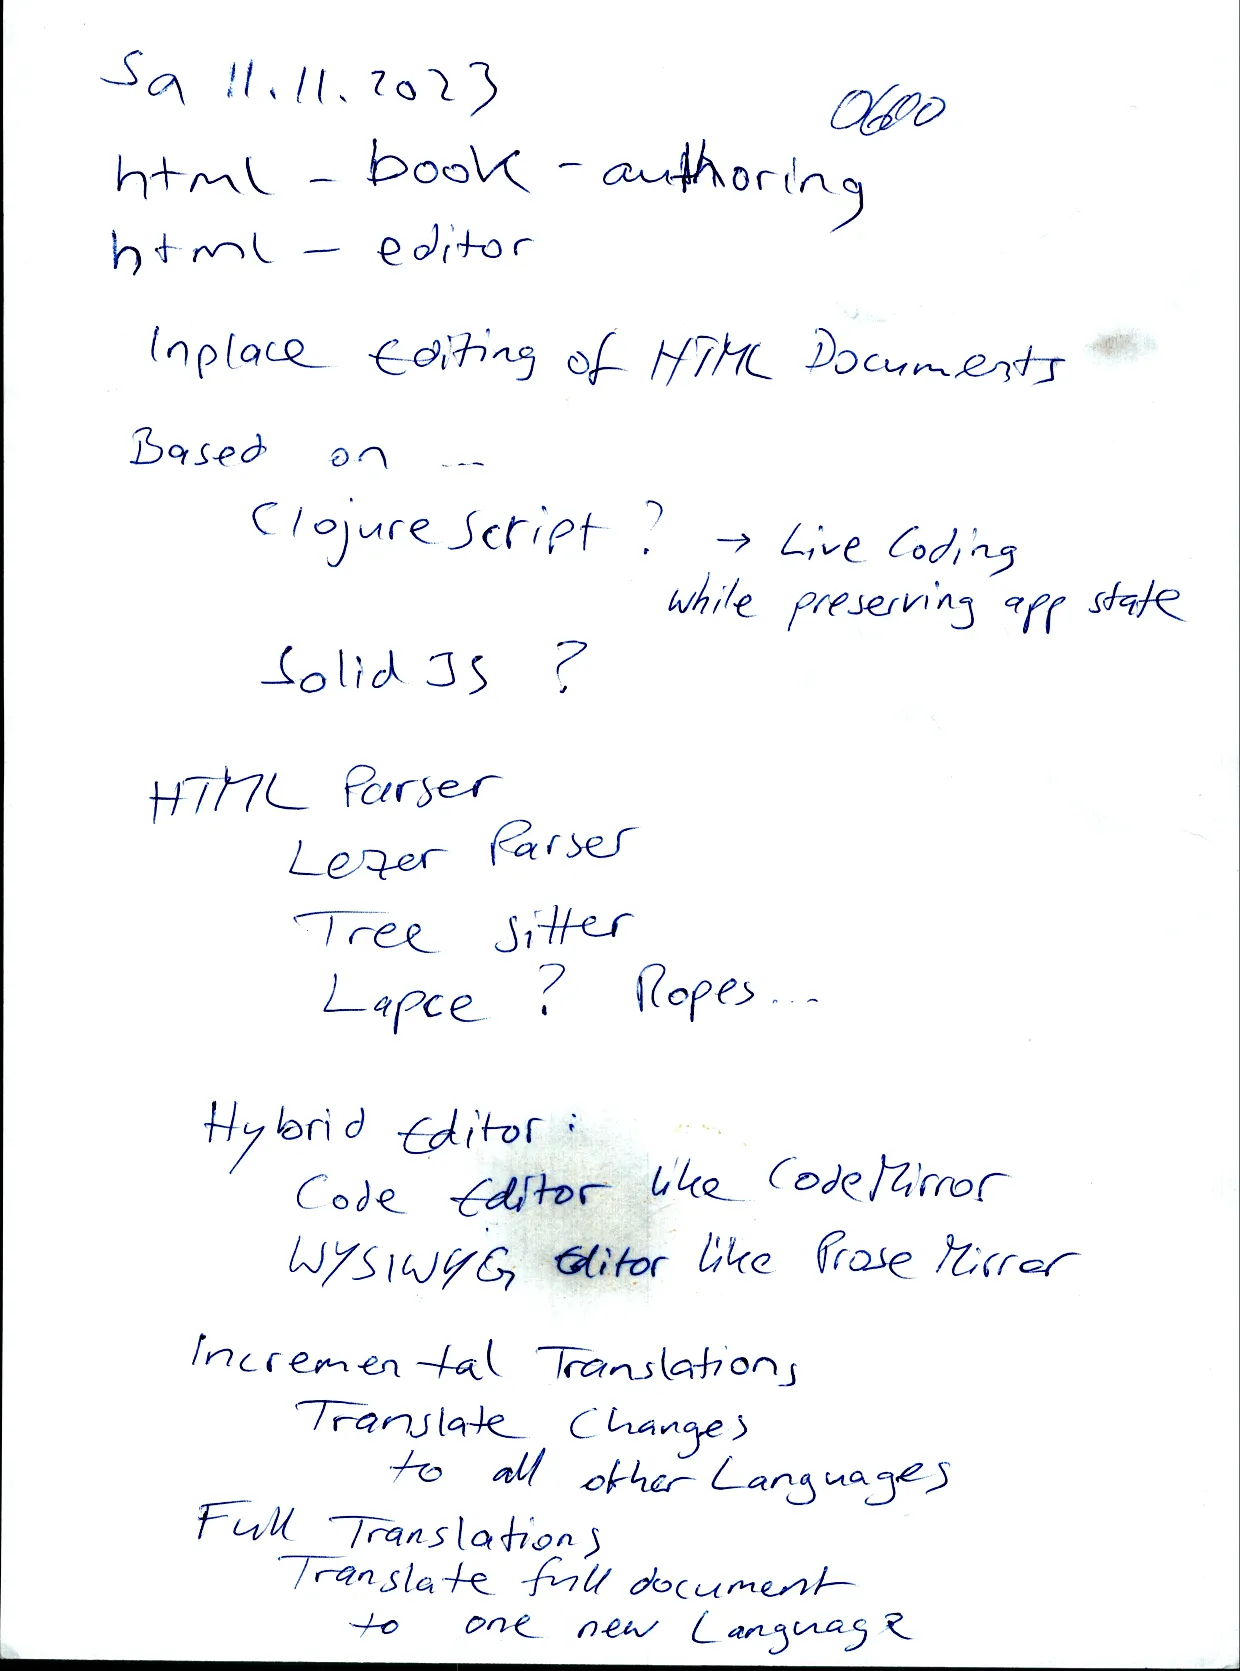 Sa 11.11.2023
0600
html - book - authoring
html - editor
Inplace Editing of HTML Documents
Based on ...
ClojureScript ? → Live Coding
while preserving app state
Solid JS ?
HTML Parser
Lezer Parser
Tree Sitter
Lapce ? Ropes...
Hybrid Editor:
Code Editor like CodeMirror
WYSIWYG Editor like ProseMirror
Incremental Translations
Translate Changes
to all other Languages
Full Translations
Translate full document
to one new Language